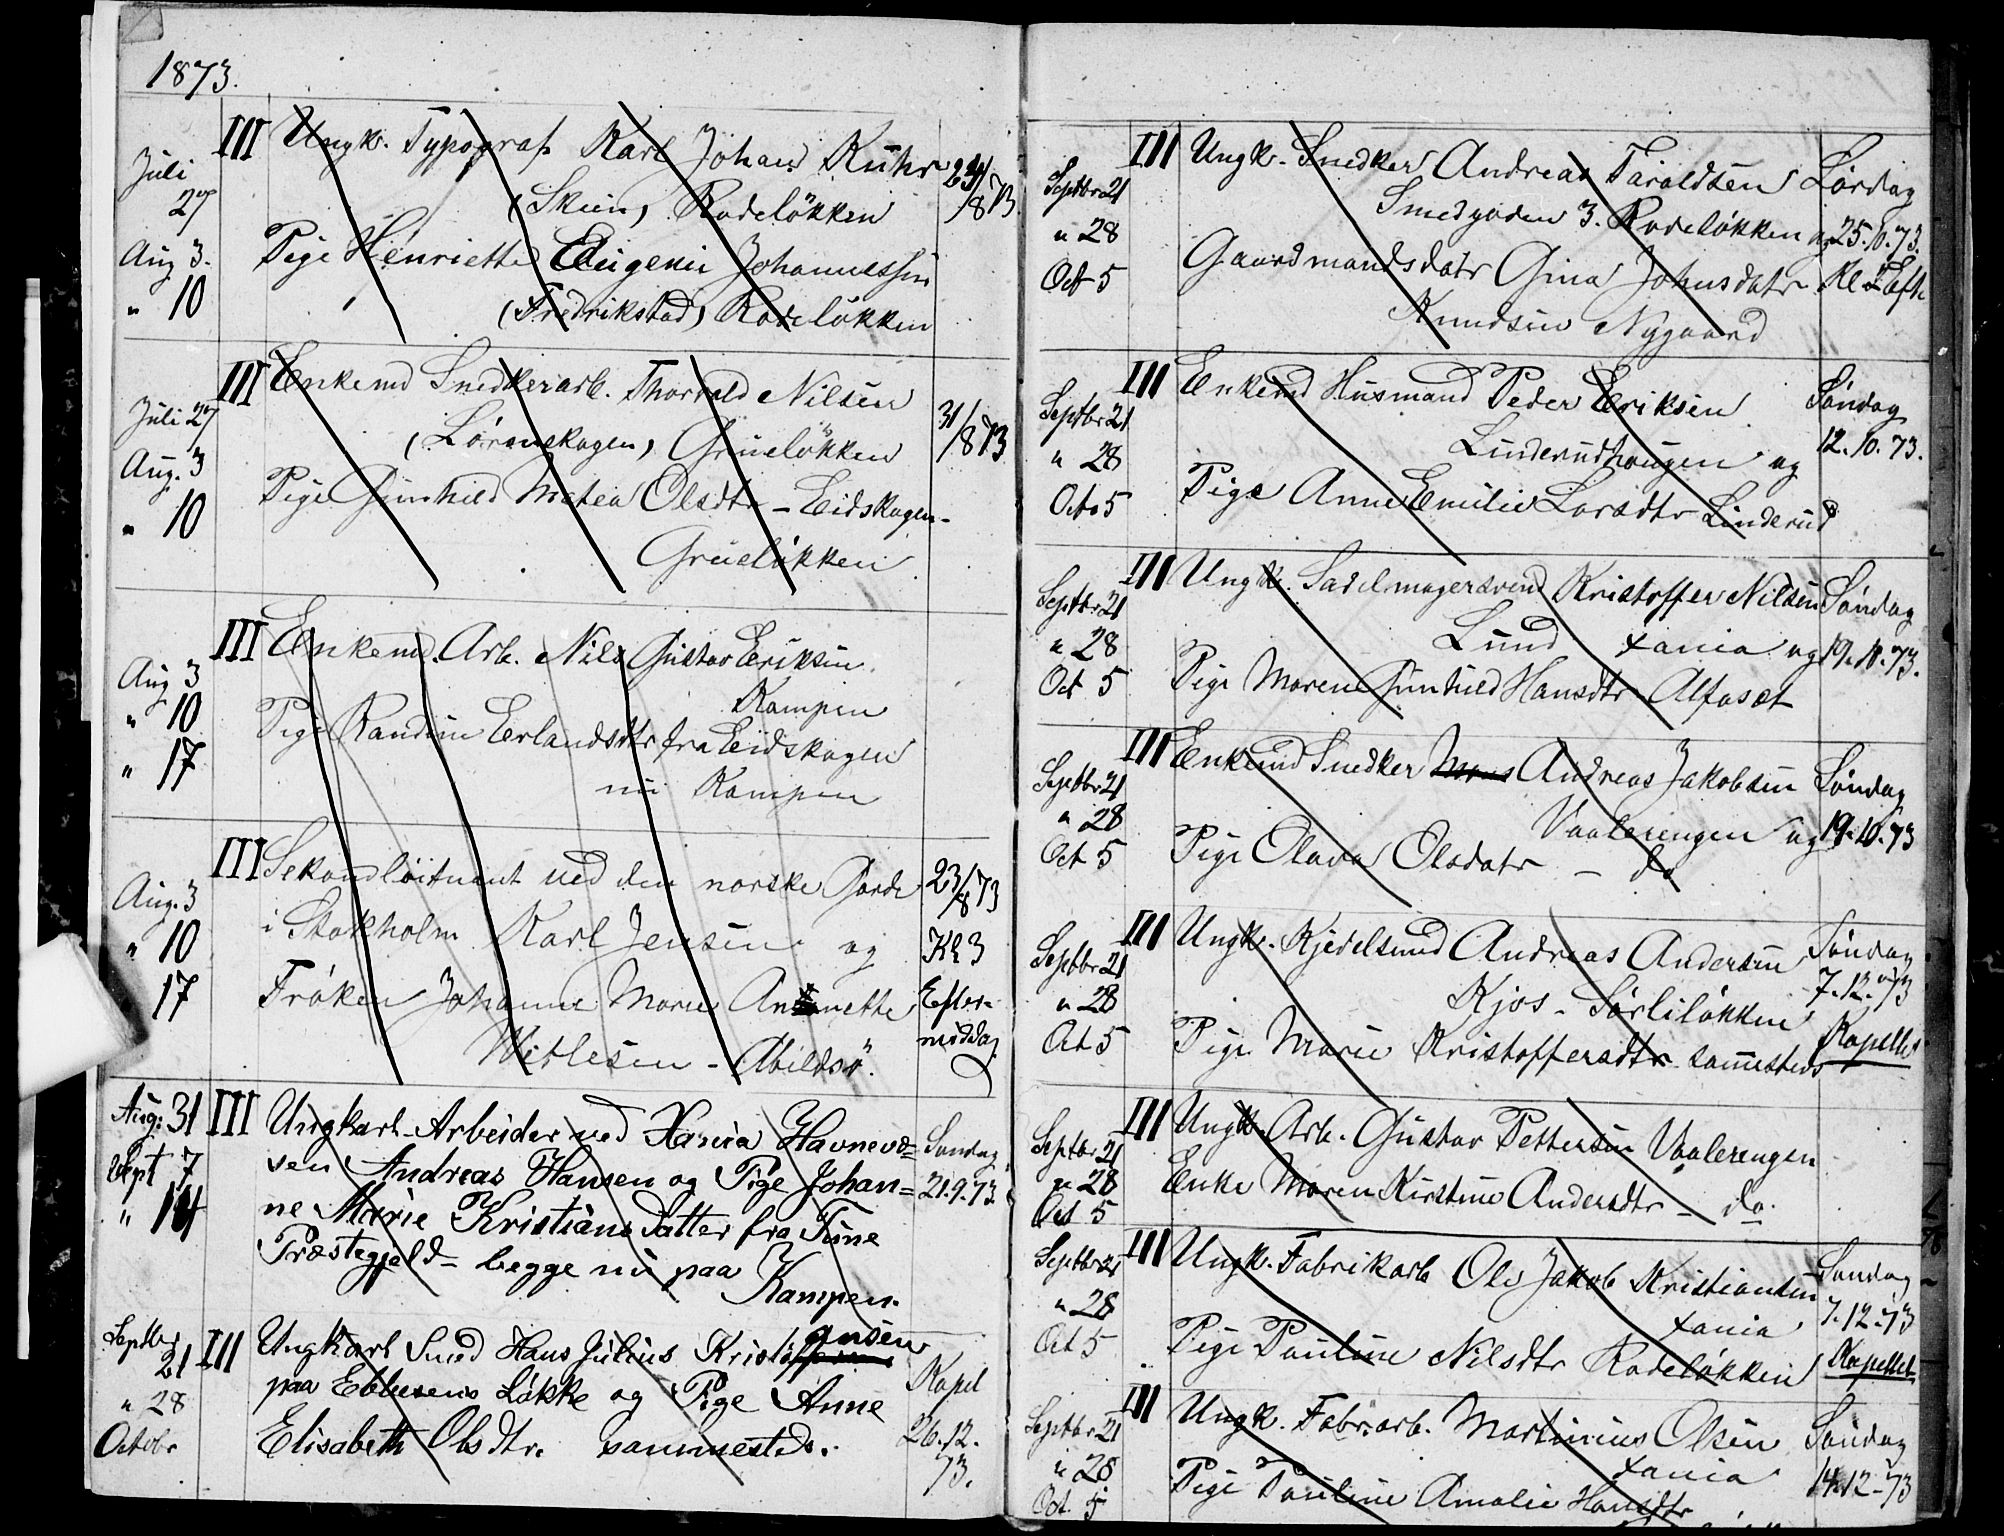 1873.
Juli 27
Aug 3.
" 10
III Ungk. Typograf Karl Johan Kuhr
(Skien) Rodeløkken
Pige Henriette Eugenie Johannessen
(Fredrikstad) Rodeløkken
24/8 73
Juli 27
Aug. 3
" 10
III Enkemd Snedkerarb. Thorvald Nilsen
(Lørenskogen) Grueløkken
Pige Gunhild Matea Olsdtr - Eidskogen -
Grueløkken
31/8 73
Aug 3
" 10
" 17
III Enkemd. Arb. Nils Gustav Eriksen
Kampen
Pige Randine Erlandsdtr fra Eidskogen
nu Kampen
Aug. 3
" 10
17
III Sekondløitnant ved den norske Garde
i Stokholm Karl Jensen og
Frøken Johanne Marie Annette
Wetlesen - Abildsö.
23/8 73
Kl 3
Efter-
middag
Aug: 31
Sept 7
" 14
III Ungkarl Arbeider ved Xania Havnevæ=
sen Andreas Hansen og Pige Johan=
ne Marie Kristians Datter fra Tune
Præstegjeld - begge nu paa
Kampen.
Søndag
21.9.73
Septbr
21
" 28
Octobr
III Ungkarl Smed Hans Julius Kristiansen
paa Ebbesens Løkke og Pige Anne
Elisabeth Olsdtr. sammesteds.
Kapel
26.12.
73.
Septbr 21
" 28
Oct 5
III Ungk. Snedker Andreas Taraldsen
Smedgaden 3. Rodeløkken og
Gaardmandsdatr Gina Johnsdatr
Knudsen Nygaard
Lørdag
25.10.73.
Kl Eft
Septbr 21
" 28
Oct 5
III Enkemd Husmand Peder Eriksen
Linderudhougen og
Pige Anne Emilie Larsdtr Linderud
Søndag
12.10.73.
Septbr 21
" 28
Oct 5
III Ungk. Sadelmagersvend Kristoffer Nilsen
Lund Xania og
Pige Maren Gunhild Hansdtr Alfaset
Søndag
19.10.73.
Septbr 21
" 28
Oct 5
III Enkemd Snedker Andreas Jakobsen
Vaalerengen og
Pige Olava Olsdatr - do
Søndag
19.10.73
Septbr 21
" 28
Oct 5
III Ungk. Kjedelsmed Andreas Andersen
Kjos - Sørliløkken
Pige Marie Kristoffersdtr sammesteds
Søndag
7.12.73
Kapellet
Septbr 21
" 28
Oct 5
III Ungk. Arb. Gustav Pettersen Vaalerengen
Enke Maren Kirstine Andersdtr - do.
Septbr 21
" 28
Oct 5
III Ungk. Fabrikarb Ole Jakob Kristiansen
Xania
Pige Pauline Nilsdtr Rodeløkken
Søndag
7.12.73
Kapellet
Septbr 21
" 28
Oct. 5
III Ungk. Fabr.arb. Martinius Olsen
Xania
Pige Pauline Amalie Hansdtr
Søndag
14.12.73